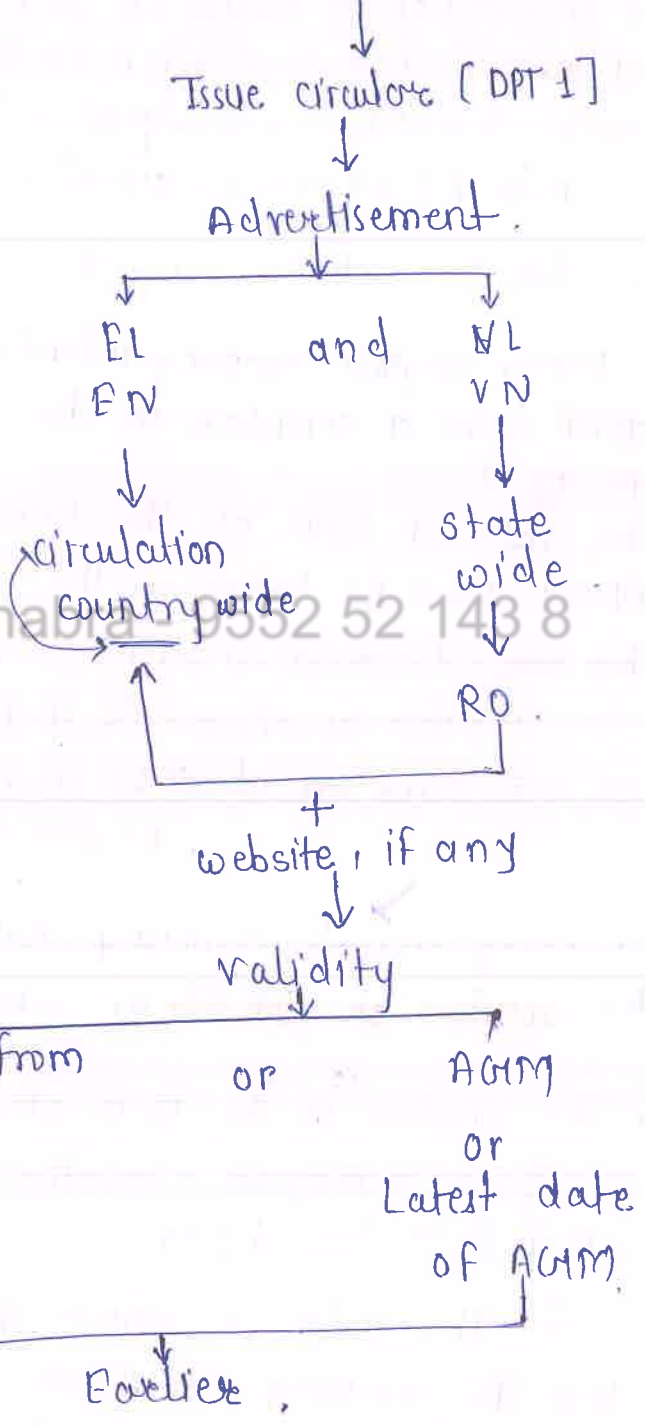 Issue circular [DPT 1]
Advertisement.
EL and VL
EN VN
circulation
countrywide
state
wide.
9552 52 143 8
RO.
+
website, if any
validity
from or AGM
or
Latest date
of AGM
Earlier.